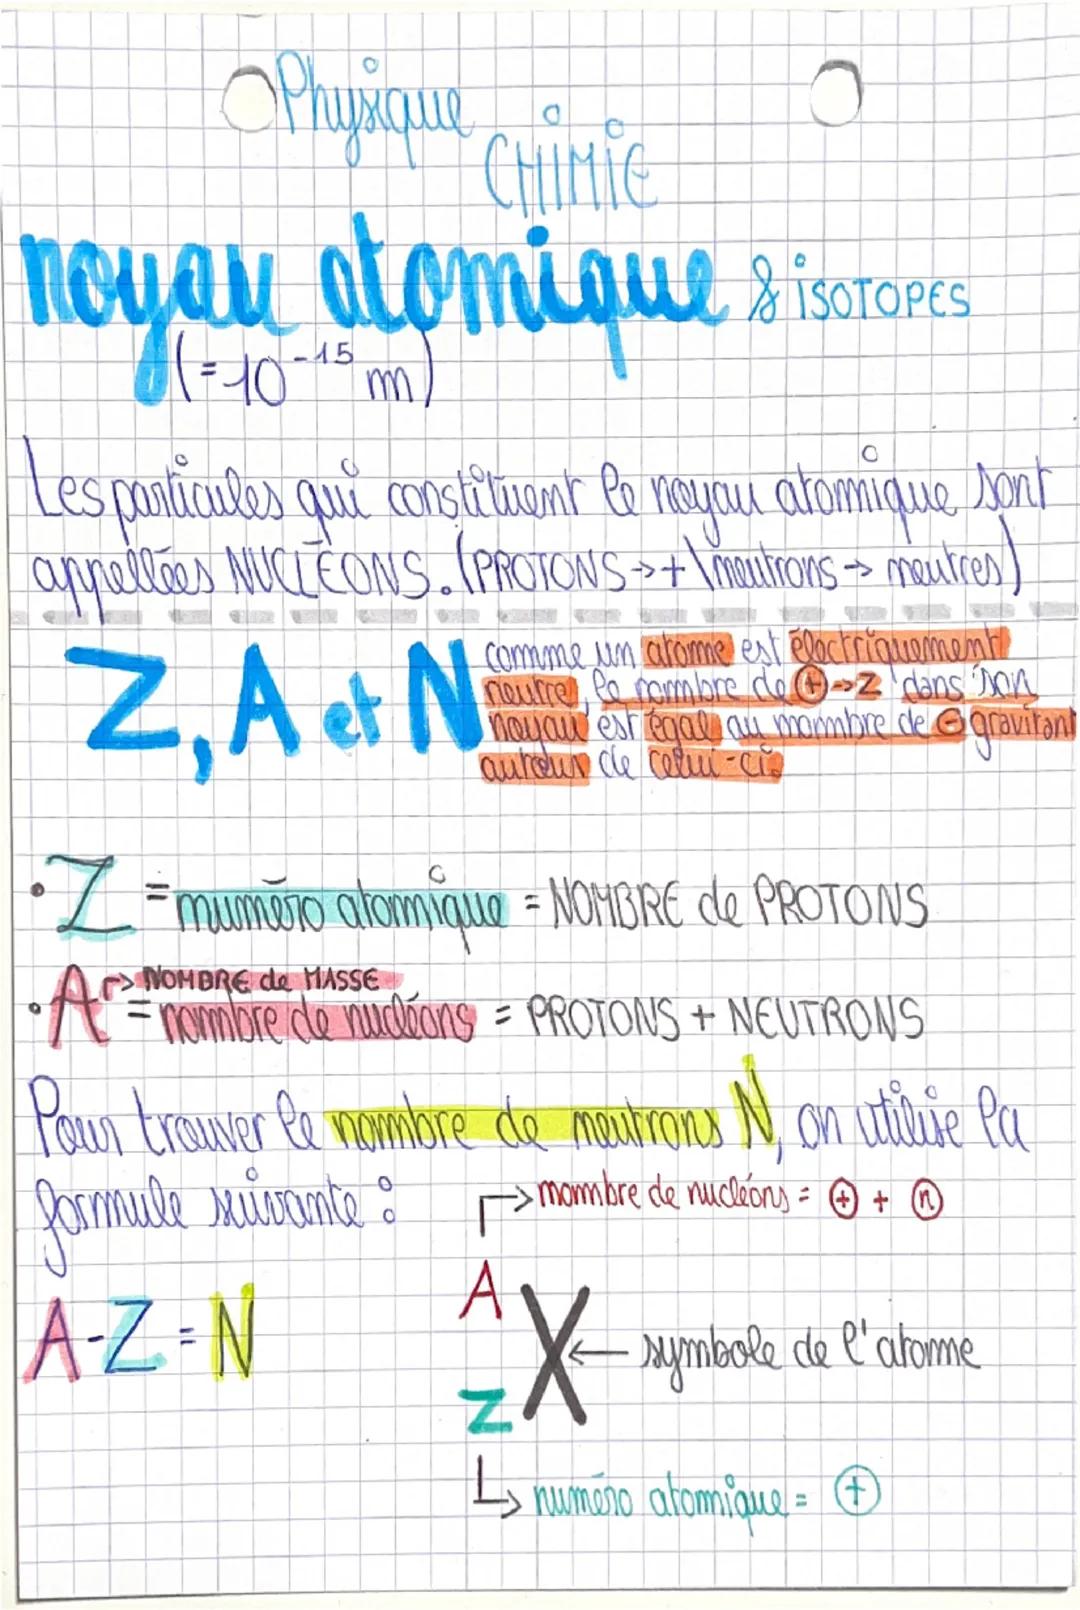 Physique
CHIMIE
noyau atomique & isOTOPES
(=10⁻¹⁵ m)
Les particules qui constituent le noyau atomique sont
appellées NUCLÉONS. (PROTONS →+ \ neutrons → neutres)
Z, A et N
comme un atome est électriquement
neutre, le nombre de ⊕→Z dans son
noyau est égal au nombre de ⊖ gravitant
autour de celui-ci.
• Z = numéro atomique = NOMBRE de PROTONS
↱ NOMBRE de MASSE
• A = nombre de nucléons = PROTONS + NEUTRONS
Pour trouver le nombre de neutrons N, on utilise la
formule suivante :
→ nombre de nucléons = ⊕ + ⓝ
A-Z = N
A
X ← symbole de l'atome
Z
↳ numéro atomique = ⊕